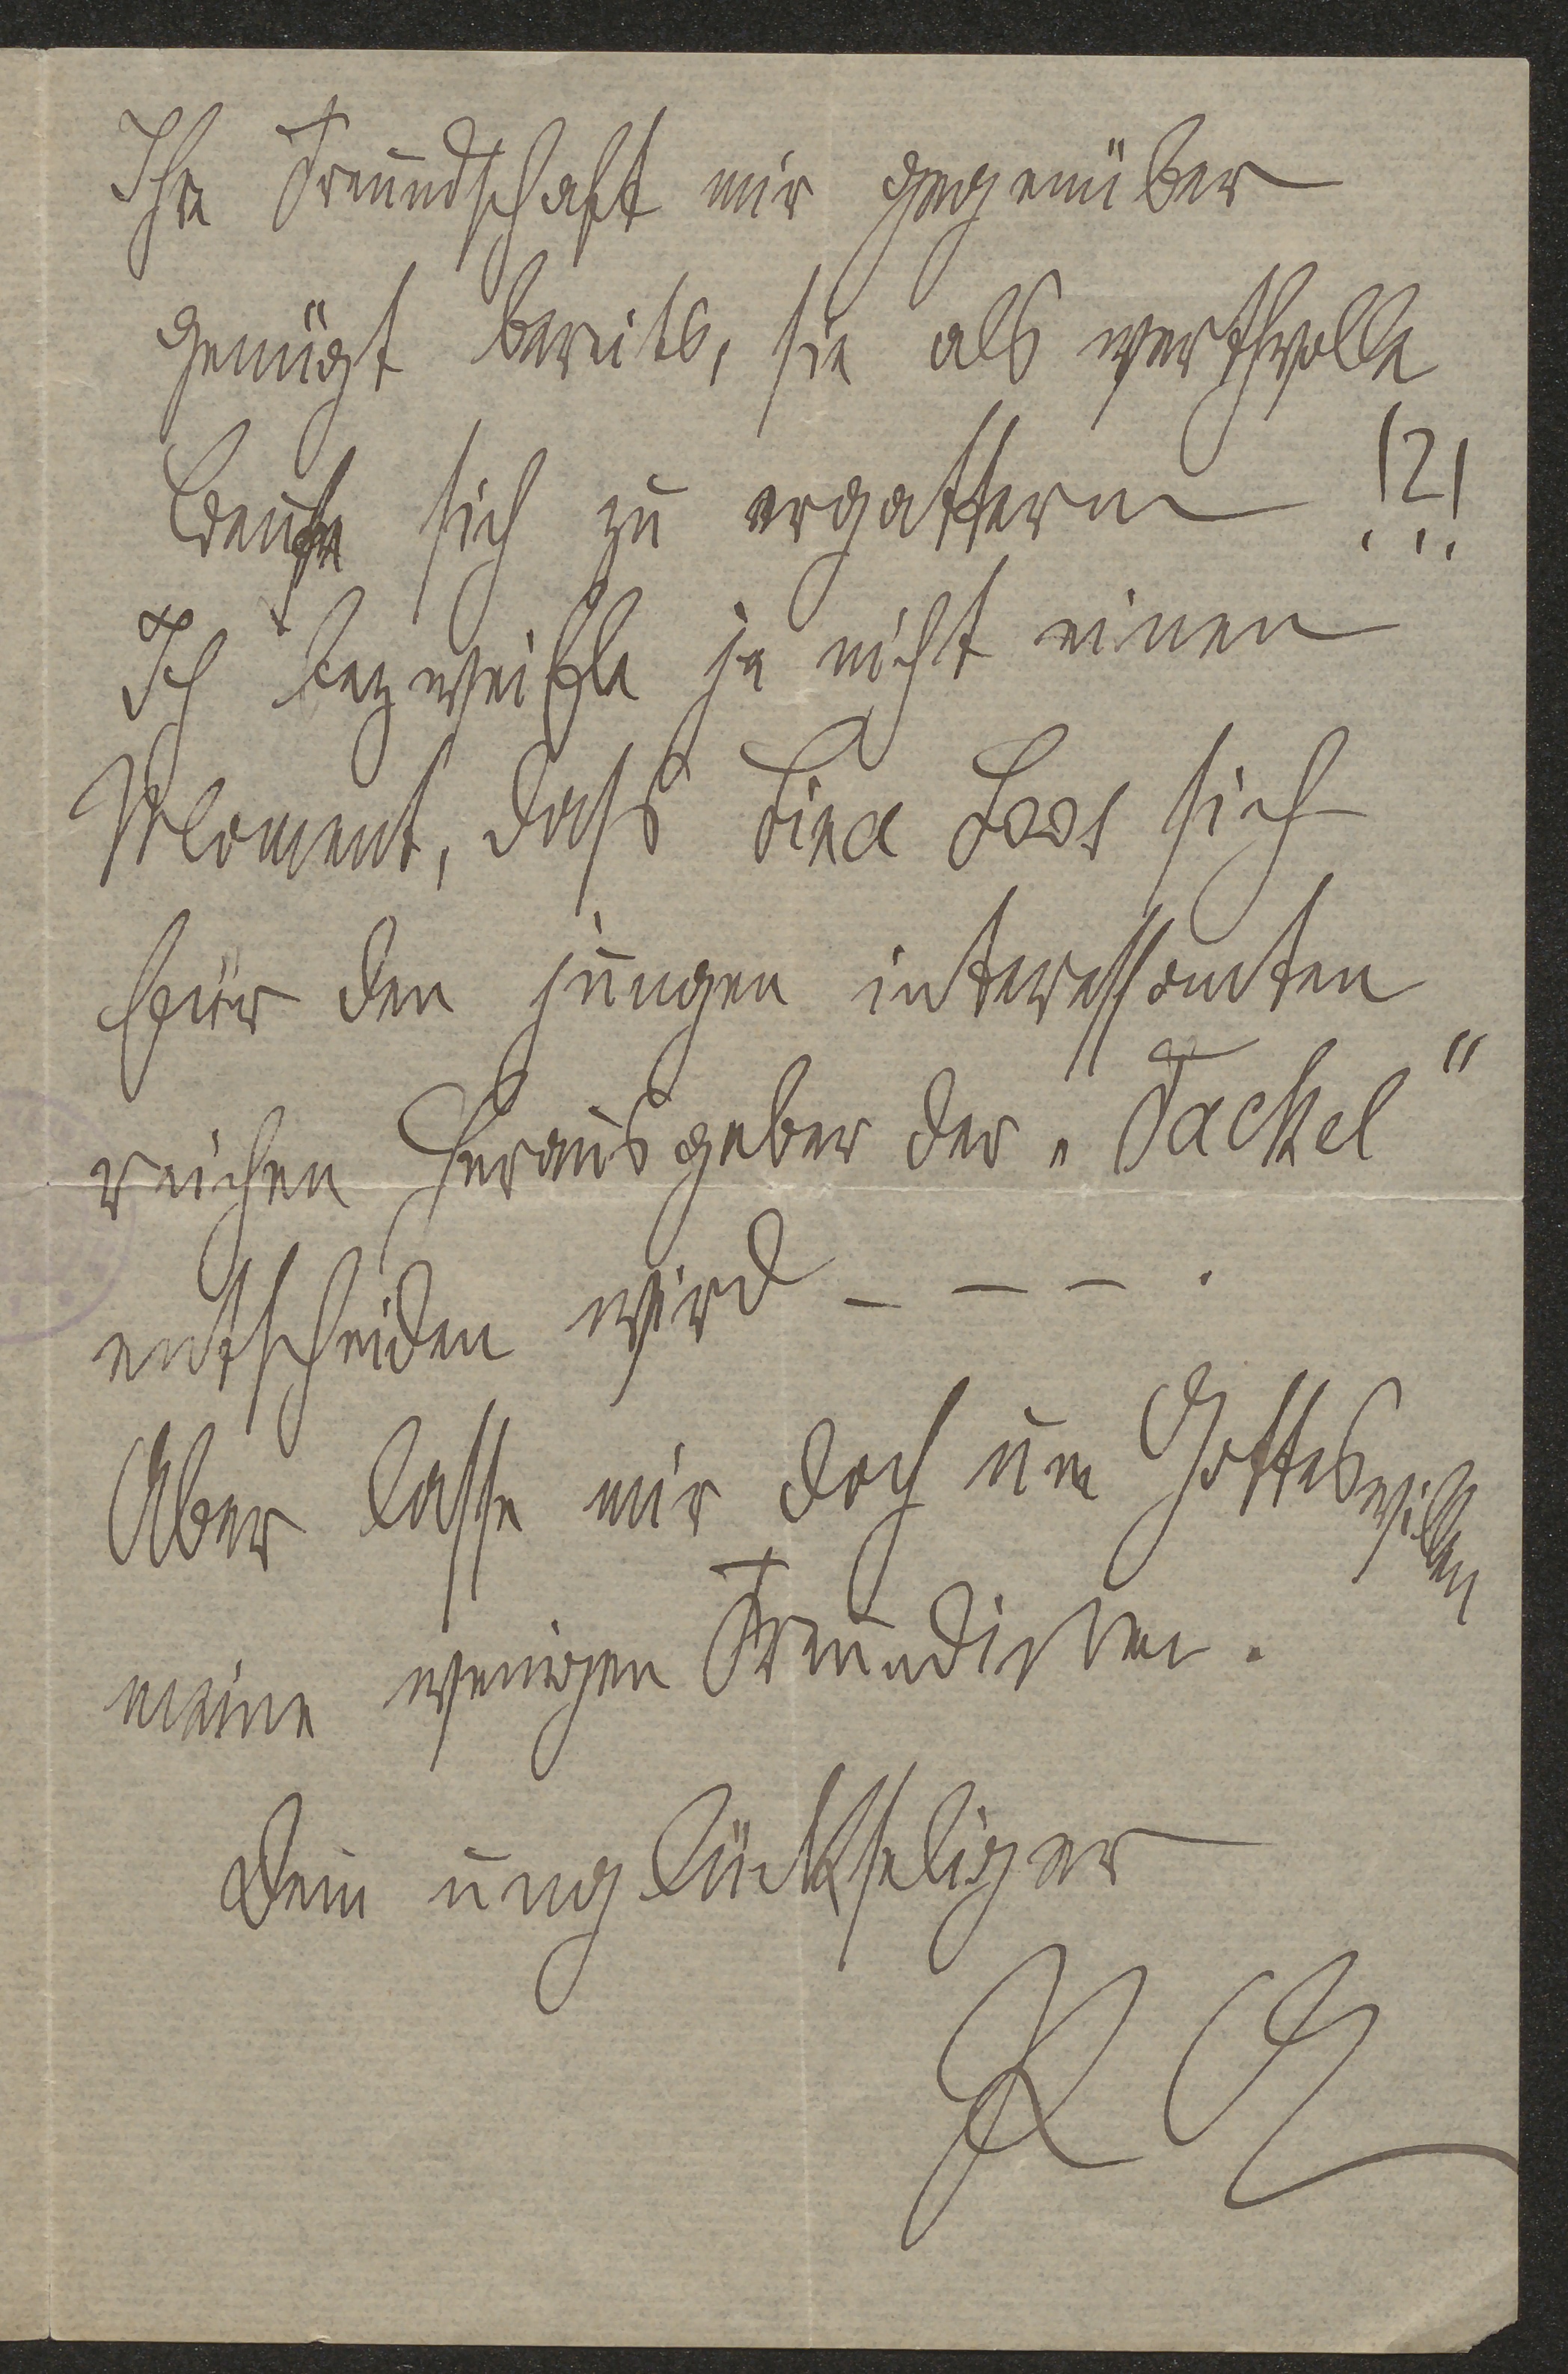 Ihre Freundschaft mir gegenüber
genügt bereits, sie als werthvolle
Beute sich zu ergattern !?!
Ich bezweifle ja nicht einen
Moment, dass Lina Loos sich
für den jungen interessanten
reichen Herausgeber der „Fackel“
entscheiden wird – – – .
Aber lasse mir doch um Gotteswillen
meine wenigen Freundinnen.
Dein unglückseliger